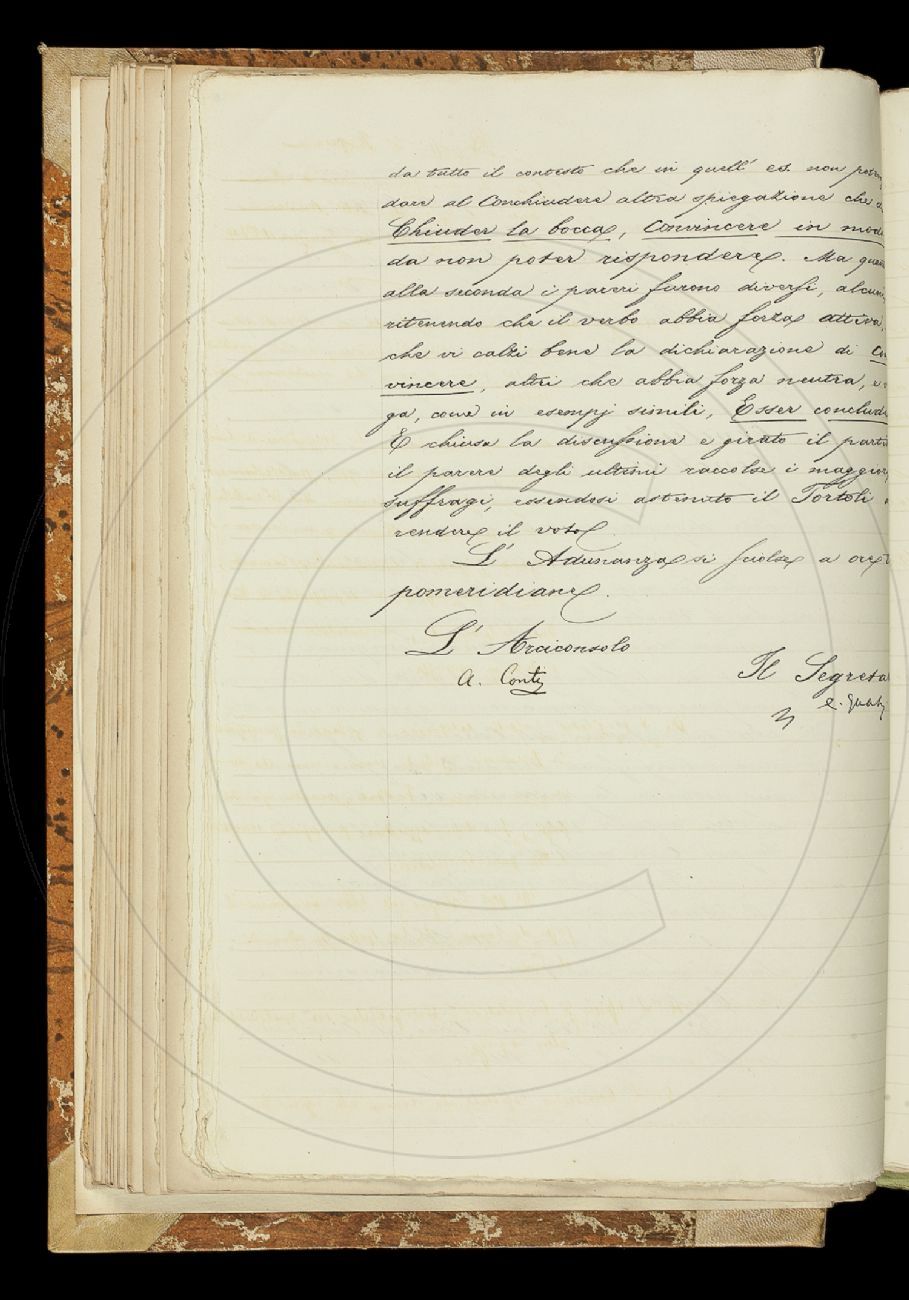 da tutto il contesto che in quell' es. non
dare al Conchiudere altra spiegazione che
Chiuder la bocca, Convincere in modo
da non poter rispondere. Ma
alla seconda i pareri furono diversi,
ritenendo che il verbo abbia forza attiva,
che vi calzi bene la dichiarazione di
vincere, altri che abbia forza neutra,
ga, come in esempj simili, Esser
E chiusa la discussione e girato il
il parere degli ultimi raccolse i
suffragi, essendosi astenuto il Tortoli
rendere il voto.
L' Adunanza si sciolse a ore
pomeridiane.
L' Arciconsolo
A. Conti
Il